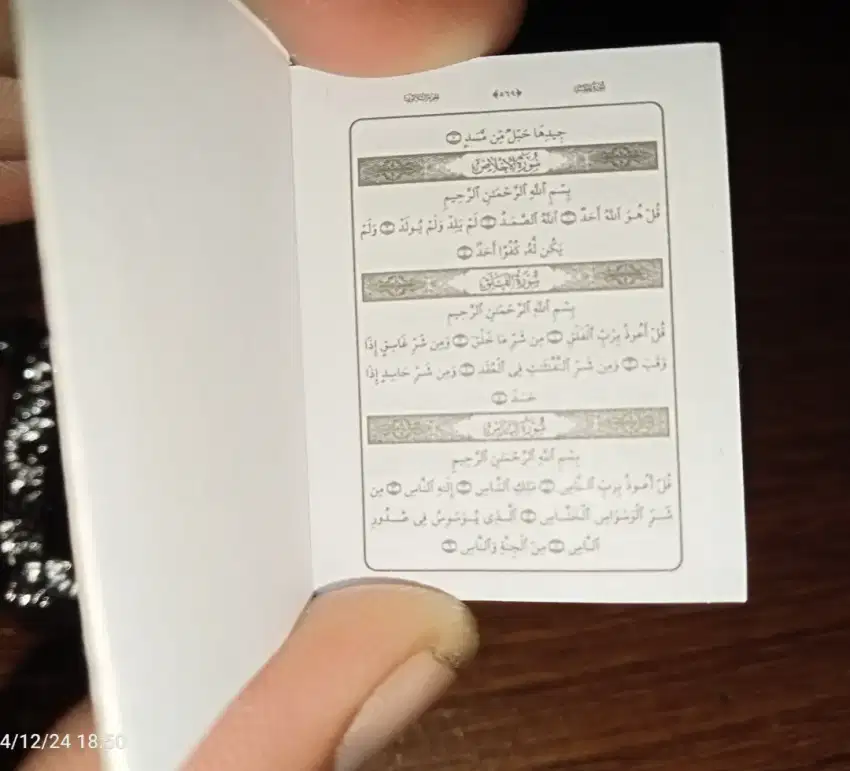 ﴿٥٦٩﴾
جِيدِهَا حَبْلٌ مِّن مَّسَدٍ
سُورَةُ الْإِخْلَاصِ
بِسْمِ ٱللَّهِ ٱلرَّحْمَٰنِ ٱلرَّحِيمِ
قُلْ هُوَ ٱللَّهُ أَحَدٌ ٱللَّهُ ٱلصَّمَدُ لَمْ يَلِدْ وَلَمْ يُولَدْ وَلَمْ
يَكُن لَّهُۥ كُفُوًا أَحَدٌ
سُورَةُ الْفَلَقِ
بِسْمِ ٱللَّهِ ٱلرَّحْمَٰنِ ٱلرَّحِيمِ
قُلْ أَعُوذُ بِرَبِّ ٱلْفَلَقِ مِن شَرِّ مَا خَلَقَ وَمِن شَرِّ غَاسِقٍ إِذَا
وَقَبَ وَمِن شَرِّ ٱلنَّفَّٰثَٰتِ فِى ٱلْعُقَدِ وَمِن شَرِّ حَاسِدٍ إِذَا
حَسَدَ
سُورَةُ النَّاسِ
بِسْمِ ٱللَّهِ ٱلرَّحْمَٰنِ ٱلرَّحِيمِ
قُلْ أَعُوذُ بِرَبِّ ٱلنَّاسِ مَلِكِ ٱلنَّاسِ إِلَٰهِ ٱلنَّاسِ مِن
شَرِّ ٱلْوَسْوَاسِ ٱلْخَنَّاسِ ٱلَّذِى يُوَسْوِسُ فِى صُدُورِ
ٱلنَّاسِ مِنَ ٱلْجِنَّةِ وَٱلنَّاسِ
4/12/24 18:50